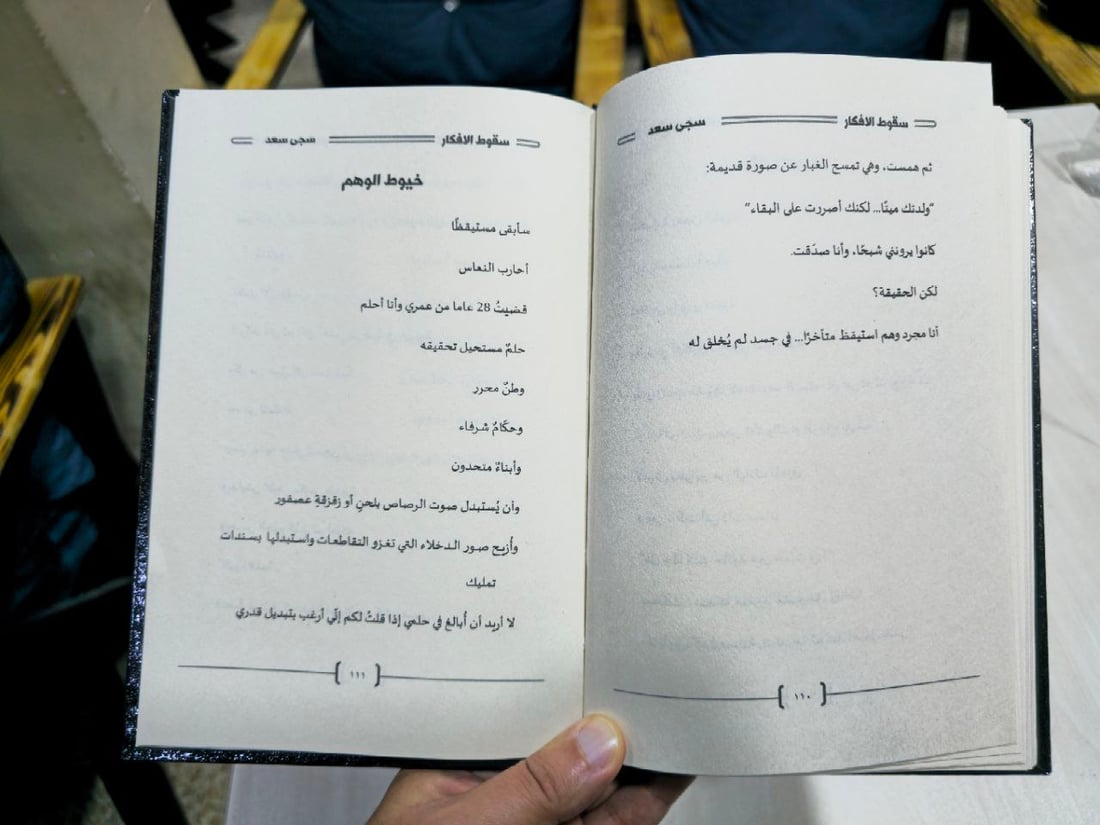 سقوط الافكار سجى سعد
ثم همست، وهي تمسح الغبار عن صورة قديمة:
“ولدتك ميتًا... لكنك أصررت على البقاء”
كانوا يرونني شبحًا، وأنا صدّقت.
لكن الحقيقة؟
أنا مجرد وهم استيقظ متأخرًا... في جسد لم يُخلق له
١١٠
سقوط الافكار سجى سعد
خيوط الوهم
سأبقى مستيقظًا
أحارب النعاس
قضيتُ 28 عاما من عمري وأنا أحلم
حلمٌ مستحيل تحقيقه
وطنٌ محرر
وحكّامٌ شرفاء
وأبناءٌ متحدون
وأن يُستبدل صوت الرصاص بلحنِ أو زقزقةِ عصفور
وأُزيح صور الدخلاء التي تغزو التقاطعات واستبدلها بسندات
تمليك
لا أريد أن أُبالغ في حلمي إذا قلتُ لكم إنّي أرغب بتبديل قدري
١١١